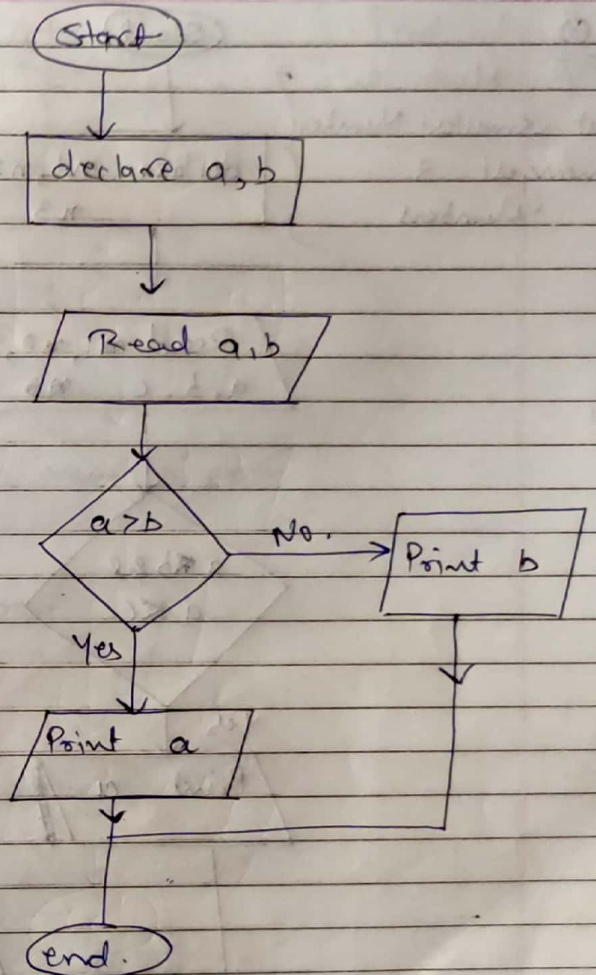 Start
declare a, b
Read a, b
a>b
No.
Print b
Yes
Print a
end.